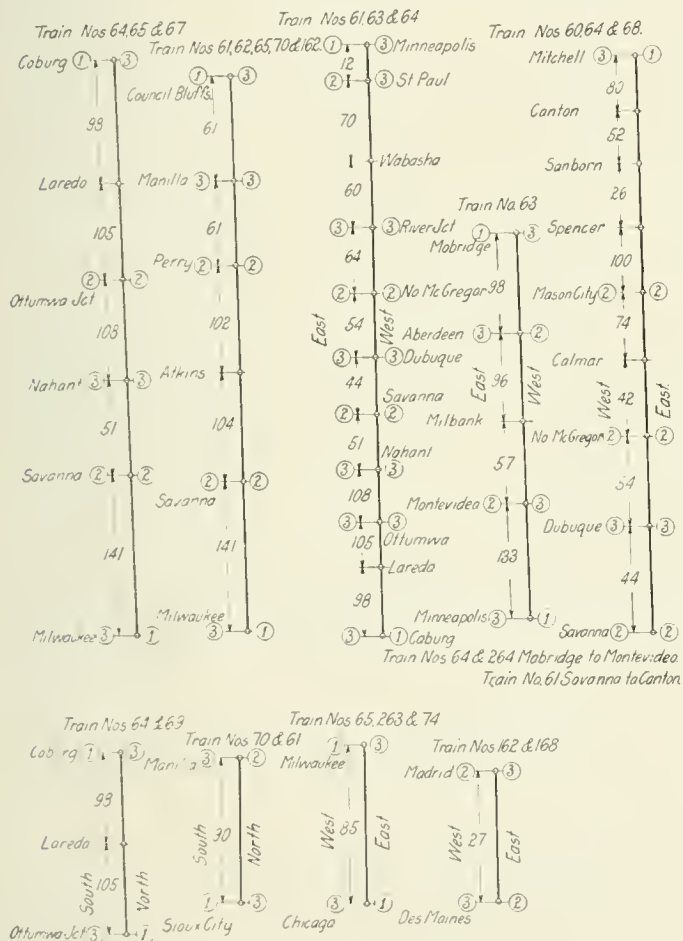 Train Nos 64,65 & 67
Coburg ① ③
98
Laredo
105
② ②
Ottumwa Jct
108
Nahant ③ ③
51
Savanna ② ②
141
Milwaukee ③ ①
Train Nos 61,62,65,70 & 162.
① ③
Council Bluffs
61
Manilla ③ ③
61
Perry ② ②
102
Atkins
104
② ②
Savanna
141
Milwaukee
③ ①
Train Nos 61,63 & 64
① ③ Minneapolis
12
② ③ St Paul
70
Wabasha
60
③ ③ River Jct
64
② ② No McGregor
East 54 West
③ ③ Dubuque
44
Savanna
② ②
51
Nahant
③ ③
108
③ ③
Ottumwa
105
Laredo
98
③ ① Coburg
Train No. 63
① ③
Mobridge
98
Aberdeen ③ ②
East 96 West
Milbank
57
Montevideo ② ③
133
Minneapolis ③ ①
Train Nos 60,64 & 68.
Mitchell ③ ①
80
Canton
52
Sanborn
26
Spencer
100
Mason City ② ②
74
Calmar
West 42 East.
No McGregor ② ②
54
Dubuque ③ ③
44
Savanna ② ②
Train Nos 64 & 264 Mobridge to Montevideo.
Train No. 61 Savanna to Canton
Train Nos 64 & 63
Coburg ① ③
98
Laredo
South 105 North
Ottumwa Jct ③ ①
Train Nos 70 & 61
Manilla ③ ②
South 90 North
① ③
Sioux City
Train Nos 65,263 & 74
① ③
Milwaukee
West 85 East
③ ①
Chicago
Train Nos 162 & 168
Madrid ② ③
West 27 East
③ ②
Des Moines